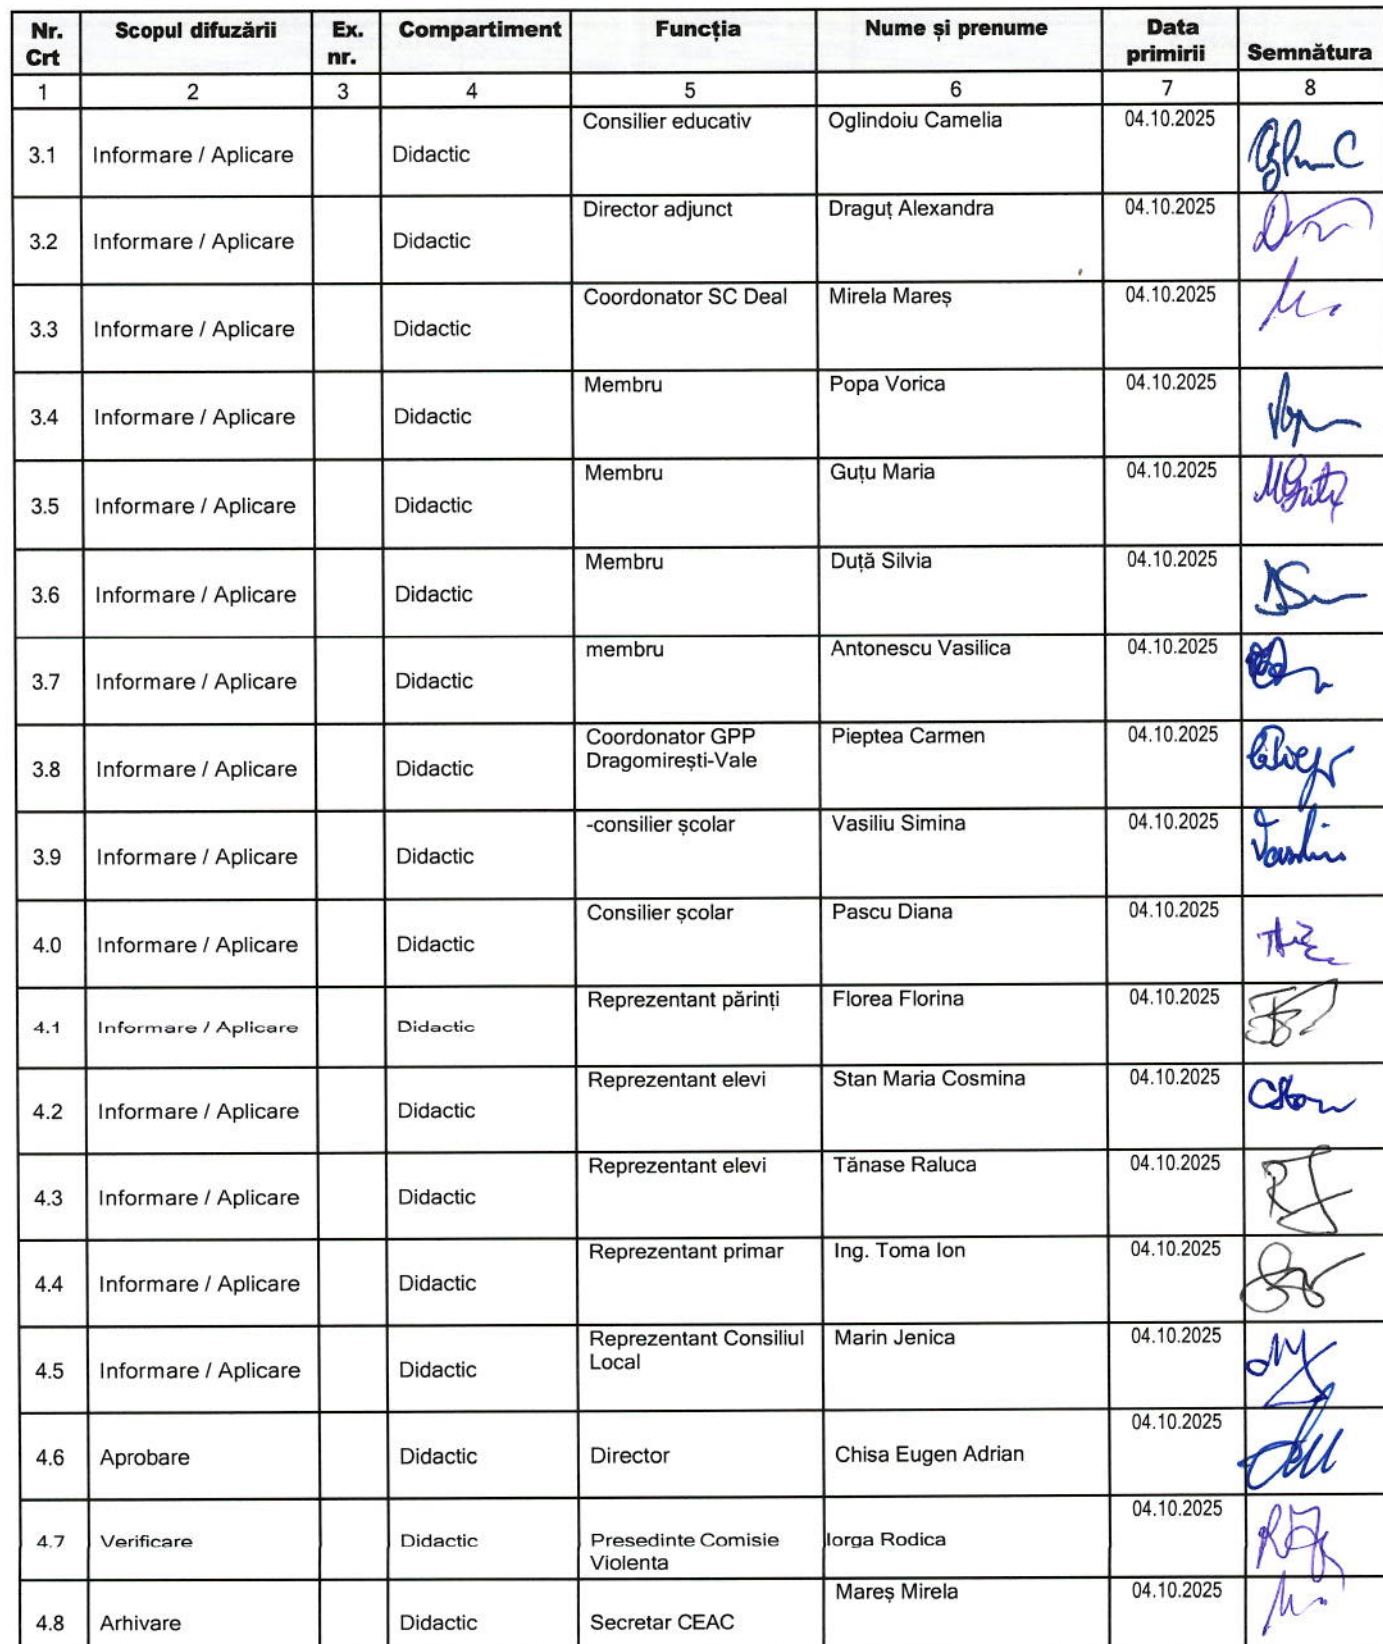 Nr. Crt Scopul difuzării Ex. nr. Compartiment Funcția Nume și prenume Data primirii Semnătura
1 2 3 4 5 6 7 8
3.1 Informare / Aplicare Didactic Consilier educativ Oglindoiu Camelia 04.10.2025
3.2 Informare / Aplicare Didactic Director adjunct Draguț Alexandra 04.10.2025
3.3 Informare / Aplicare Didactic Coordonator SC Deal Mirela Mareș 04.10.2025
3.4 Informare / Aplicare Didactic Membru Popa Vorica 04.10.2025
3.5 Informare / Aplicare Didactic Membru Guțu Maria 04.10.2025
3.6 Informare / Aplicare Didactic Membru Duță Silvia 04.10.2025
3.7 Informare / Aplicare Didactic membru Antonescu Vasilica 04.10.2025
3.8 Informare / Aplicare Didactic Coordonator GPP Dragomirești-Vale Pieptea Carmen 04.10.2025
3.9 Informare / Aplicare Didactic -consilier școlar Vasiliu Simina 04.10.2025
4.0 Informare / Aplicare Didactic Consilier școlar Pascu Diana 04.10.2025
4.1 Informare / Aplicare Didactic Reprezentant părinți Florea Florina 04.10.2025
4.2 Informare / Aplicare Didactic Reprezentant elevi Stan Maria Cosmina 04.10.2025
4.3 Informare / Aplicare Didactic Reprezentant elevi Tănase Raluca 04.10.2025
4.4 Informare / Aplicare Didactic Reprezentant primar Ing. Toma Ion 04.10.2025
4.5 Informare / Aplicare Didactic Reprezentant Consiliul Local Marin Jenica 04.10.2025
4.6 Aprobare Didactic Director Chisa Eugen Adrian 04.10.2025
4.7 Verificare Didactic Presedinte Comisie Violenta Iorga Rodica 04.10.2025
4.8 Arhivare Didactic Secretar CEAC Mareș Mirela 04.10.2025